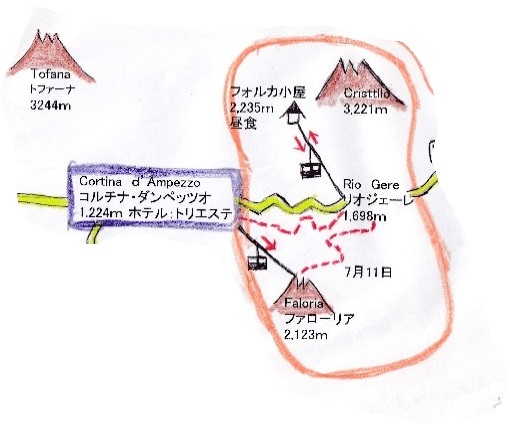 Tofana
トファーナ
3244m
フォルカ小屋
2,235m
昼食
Cristtilo
3,221m
Cortina d'Ampezzo
コルチナ・ダンペッツオ
1.224m ホテル:トリエステ
Rio Gere
リオジェーレ
1,698m
7月11日
Faloria
ファローリア
2,123m